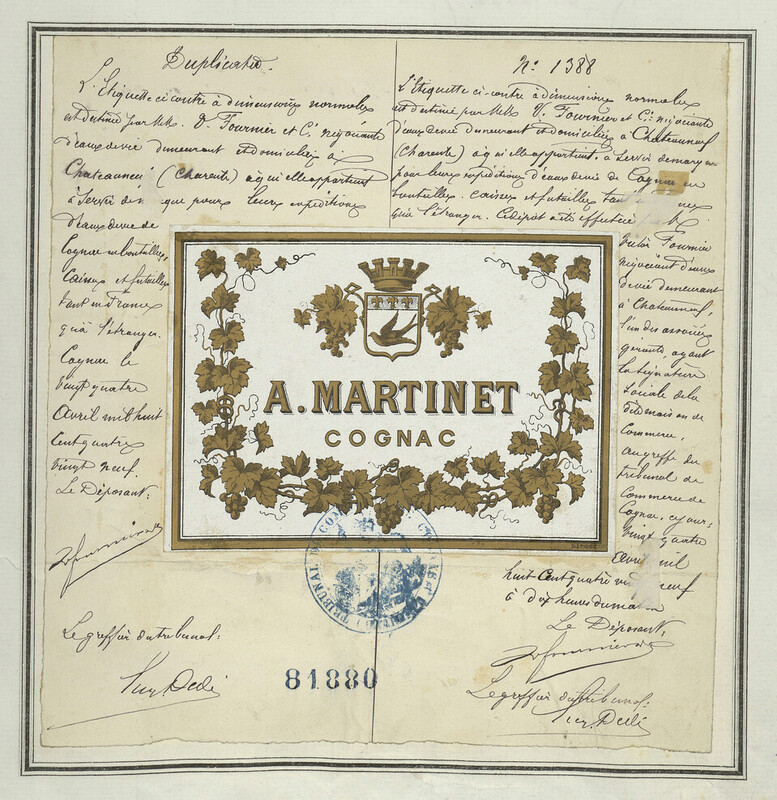 Duplicata.
L'Etiquette ci contre à dimensions normales
est destinée par MM. V. Fournier et Cie négociants
d'eaux de vie demeurant et domiciliés à
Chateauneuf (Charente) à qui elle appartient
à servir de que pour leurs expéditions
d'eaux de vie de
Cognac en bouteilles,
caisses et futailles
tant en France
qu'à l'étranger.
Cognac le
vingt quatre
Avril mil huit
cent quatre
vingt neuf.
Le Déposant:
V Fournier
Le greffier du tribunal:
No 1388
L'Etiquette ci-contre à dimensions normales
est destinée par MM. V. Fournier et Cie négociants
d'eaux de vie demeurant et domiciliés à Chateauneuf
(Charente) à qui elle appartient, à servir de marque
pour leurs expéditions d'eaux de vie de Cognac en
bouteilles, caisses et futailles tant
qu'à l'étranger. Ce dépôt a été effectué
Victor Fournier
négociant d'eaux
de vie demeurant
à Chateauneuf,
l'un des associés
gérants, ayant
la signature
sociale de la
dite maison de
Commerce,
au greffe du
tribunal de
Commerce de
Cognac, ce jour:
vingt quatre
Avril mil
huit cent quatre neuf
à dix heures du
Le Déposant,
V Fournier
Le greffier du tribunal:
A. MARTINET
COGNAC
TRIBUNAL DE COM
81880